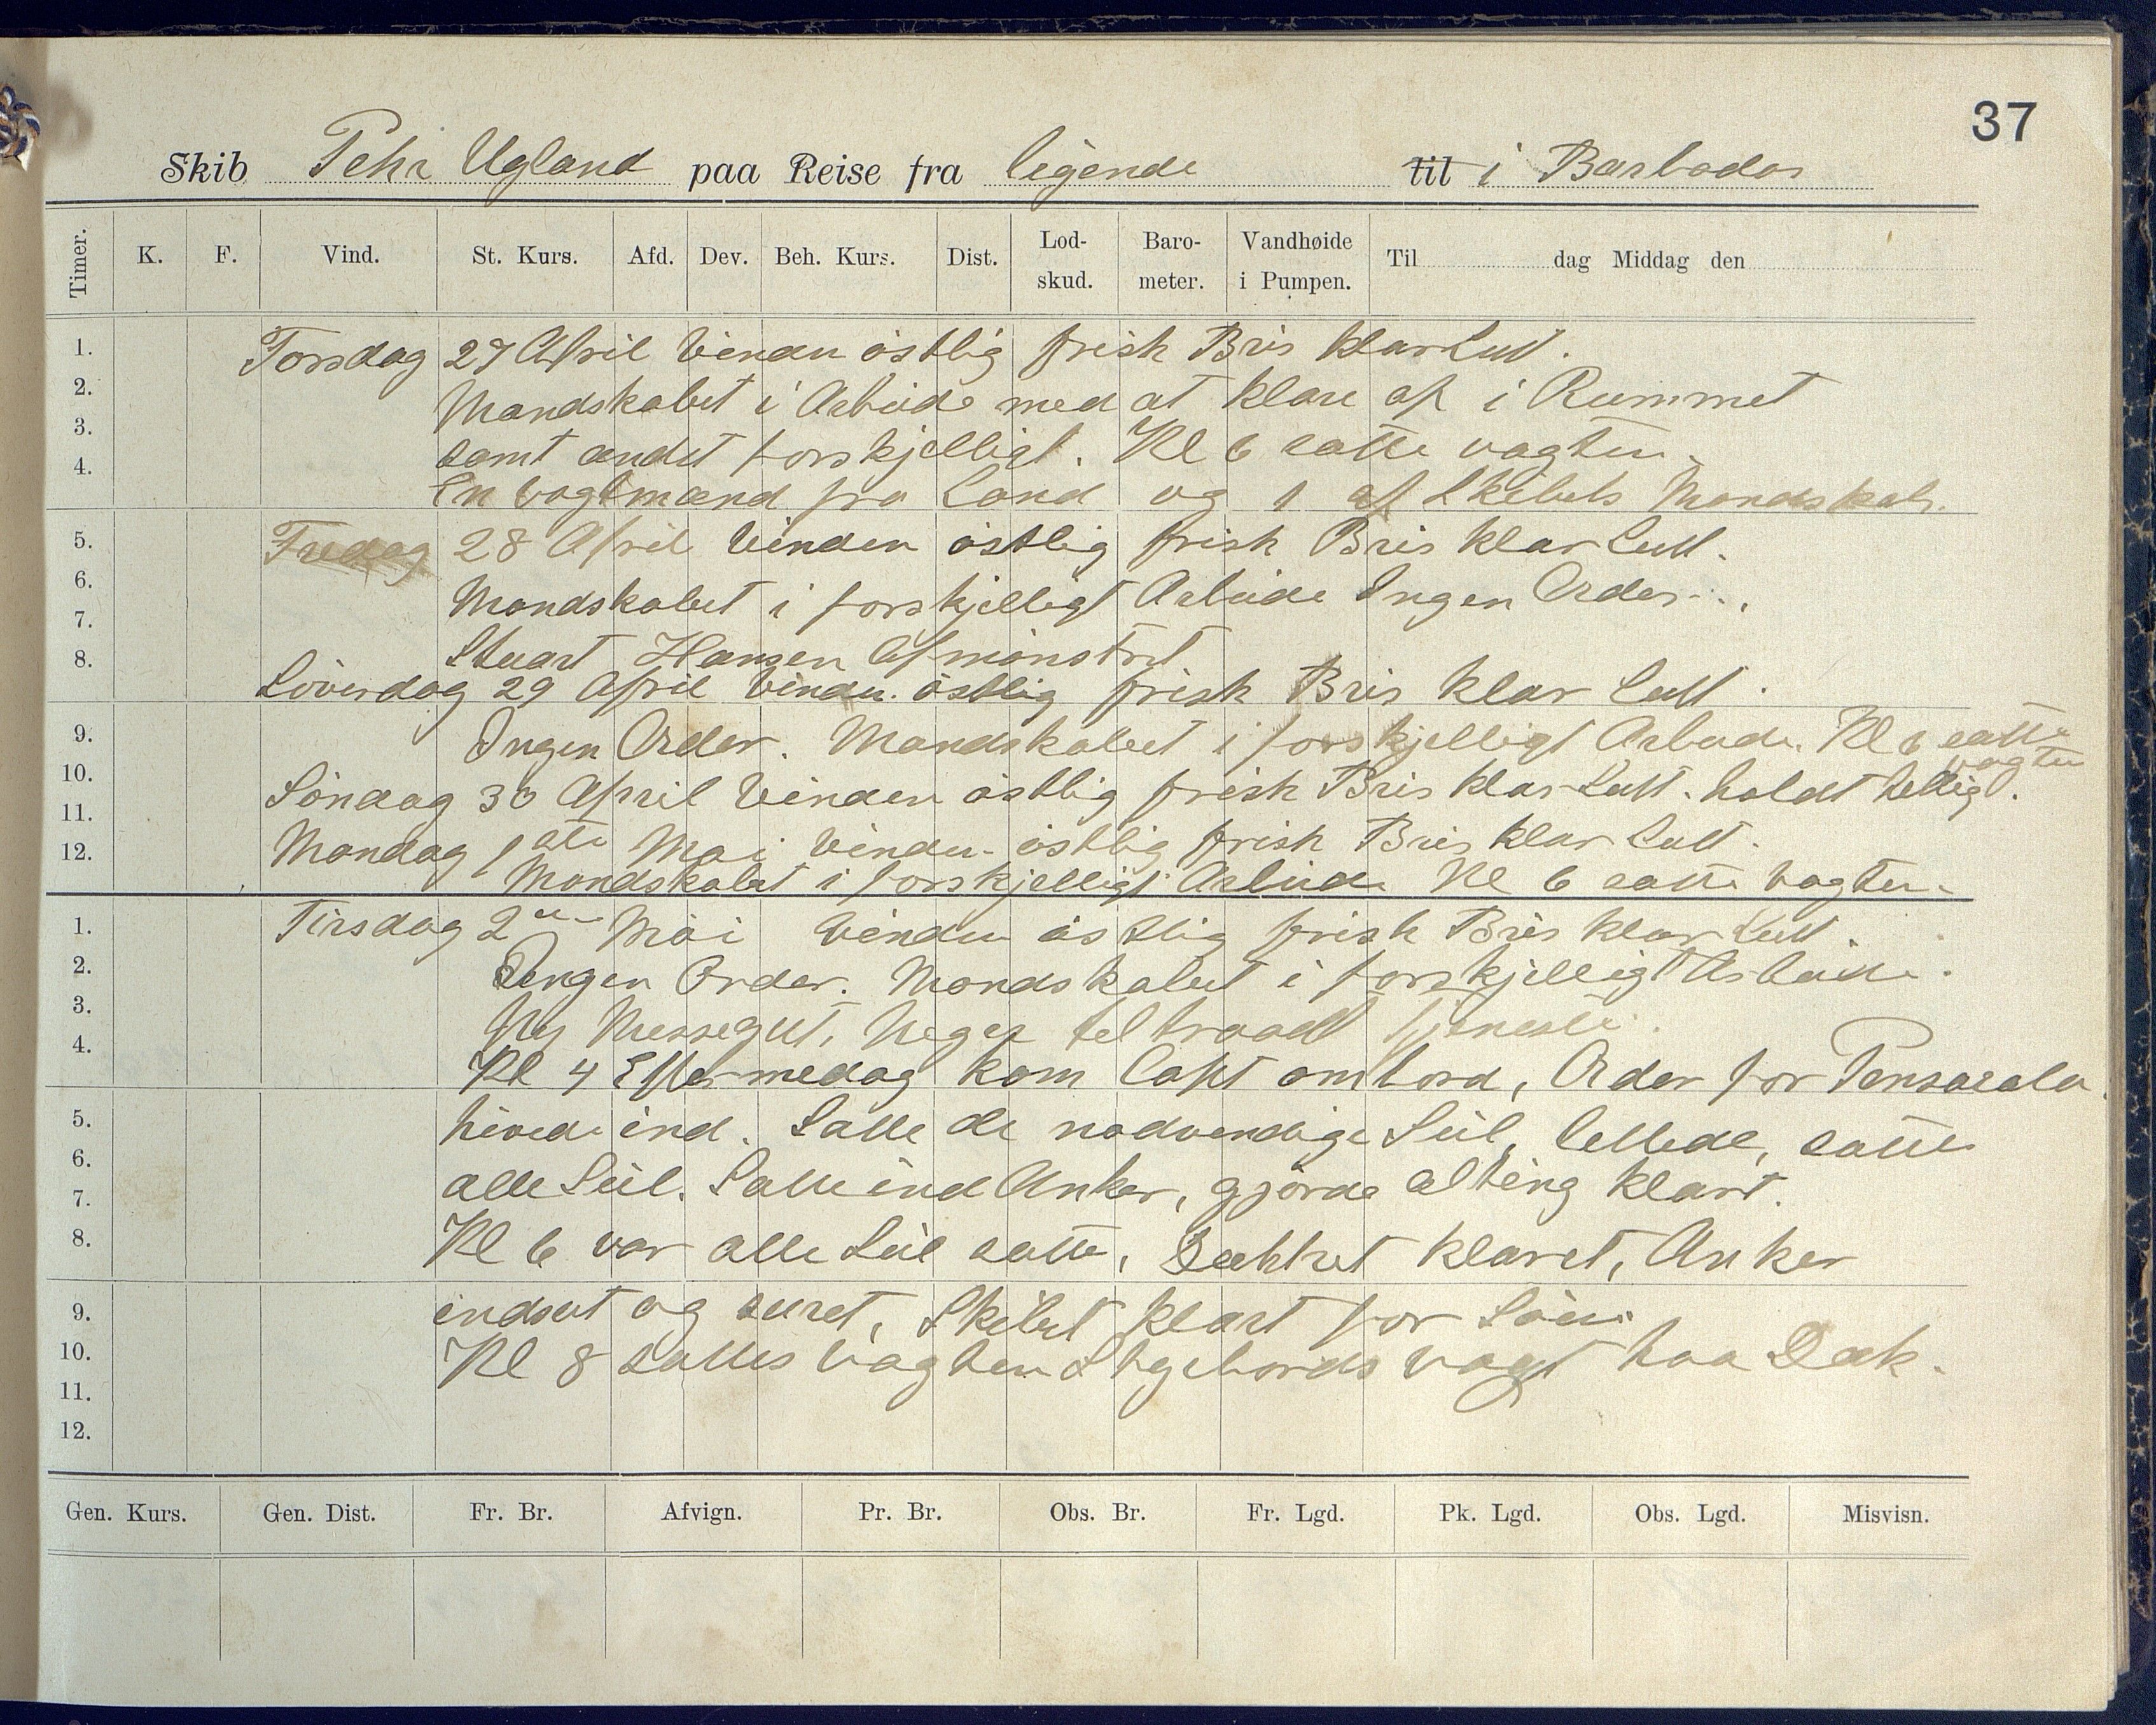 37
Skib Pehr Ugland paa Reise fra ligende til i Barbados
Timer. K. F. Vind. St. Kurs. Afd. Dev. Beh. Kurs. Dist. Lod-skud. Baro-meter. Vandhøide i Pumpen. Til dag Middag den
1. Torsdag 27 April Vinden östlig frisk Bris klar Luft.
2. Mandskabet i Arbeide med at klare op i Rummet
3. samt andet forskjelligt. Kl 6 satte vagten.
4. En vagtmand fra Land og 1 af Skibets Mandskab.
5. Fredag 28 April Vinden östlig frisk Bris klar Luft.
6. Mandskabet i forskjelligt Arbeide Ingen Order.
7.
8. Stuart Hansen Afmönstret
Löverdag 29 April Vinden östlig frisk Bris klar Luft.
9. Ingen Order. Mandskabet i forskjelligt Arbeide. Kl 6 satte vagten
10. Söndag 30 April Vinden östlig frisk Bris klar Luft. holdt hellig.
11.
12. Mandag 1ste Mai Vinden östlig frisk Bris klar Luft.
Mandskabet i forskjelligt Arbeide Kl 6 satte vagten.
1. Tirsdag 2den Mai Vinden östlig frisk Bris klar Luft.
2. Ingen Order. Mandskabet i forskjelligt Arbeide.
3. Ny Messegut, Neger tiltraadt tjeneste.
4. Kl 4 Eftermedag kom Capt ombord, Order for Pensacola.
5. hivede ind. Satte de nødvendige Seil, lettede, satte
6. alle Seil. Satte ind Anker, gjorde alting klart.
7.
8. Kl 6 var alle Seil satte, Dækket klaret, Anker
9. indsat og suret, Skibet klart for Söen.
10. Kl 8 sattes Vagten Stgebords vagt paa Dæk.
11.
12.
Gen. Kurs. Gen. Dist. Fr. Br. Afvign. Pr. Br. Obs. Br. Fr. Lgd. Pk. Lgd. Obs. Lgd. Misvisn.